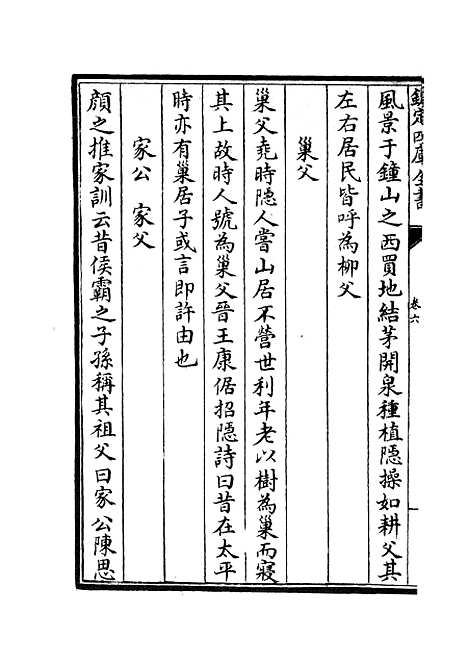 欽定四庫全書
卷六
風景于鐘山之西買地結茅開泉種植隠操如耕父其
左右居民皆呼為柳父
巢父
巢父堯時隠人嘗山居不營世利年老以樹為巢而寢
其上故時人號為巢父晉王康倨招隠詩曰昔在太平
時亦有巢居子或言即許由也
家公 家父
顔之推家訓云昔侯霸之子孫稱其祖父曰家公陳思